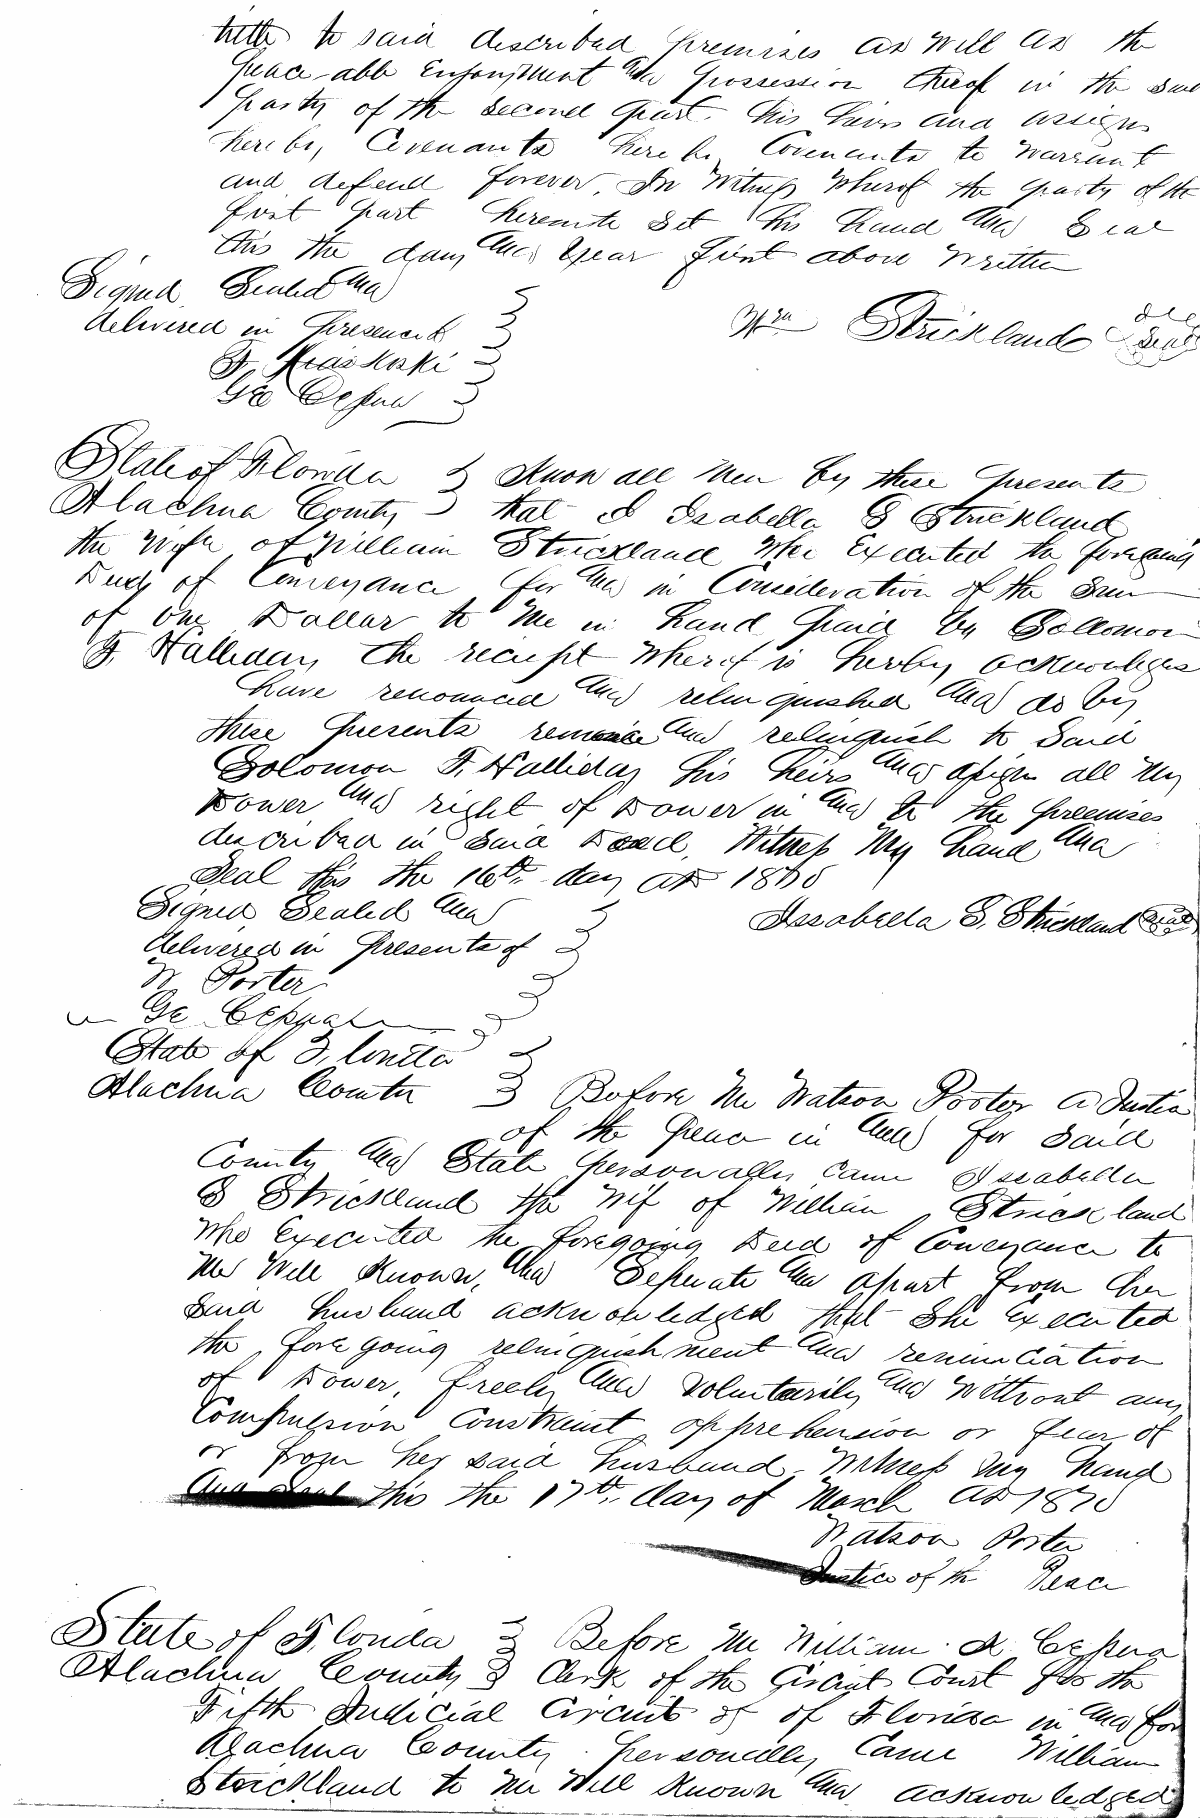 title to said described premises as well as the
peace-able Enjoyment and possession thereof in the said
party of the second part. his heirs and assigns
hereby Covenants hereby Covenants to warrant
and defend forever. In Witness Wherof the party of the
first part hereunto set his hand and Seal
this the day and Year first above Written
Signed Sealed and
delivered in presence of
Wm Strickland Seal
F.
Geo
State of Florida Know all Men by these presents
Alachua County that I Isabella S Strickland
the Wife of William Strickland Who Executed the foregoing
Deed of Conveyance for and in Consideration of the Sum
of one Dollar to Me in hand paid by Solomon
F. Halliday the reciept Wherof is herby acknowledged
have renounced and relinquished and do by
these presents remise and relinquish to Said
Solomon F. Halliday his heirs and assigns all My
Dower and right of Dower in and to the premises
described in Said Deed. Witness My hand and
Seal this the 16th day AD 1870
Signed Sealed and
Issabella S. Strickland Seal
delivered in presents of
W Porter
Geo
State of Florida
Alachua County Before Me Watson Porter a Justice
of the peace in and for said
County and State personally came Issabella
S Strickland the Wif of William Strickland
Who Executed the foregoing Deed of Conveyance to
Me Well Known, and Seperate and apart from her
said husband acknowledged that She Executed
the foregoing relinquishment and renunciation
of Dower, freely and Voluntarily and Without any
Compulsion Constraint apprehension or fear of
or from her said husband. Witness My hand
and Seal this the 17th day of March AD 1870
Watson Porter
Justice of the Peace
State of Florida Before Me William
Alachua County Clerk of the Circuit Court for the
Fifth Judicial Circuit of of Florida in and for
Alachua County personally Came William
Strickland to Me Well Known and acknowledged